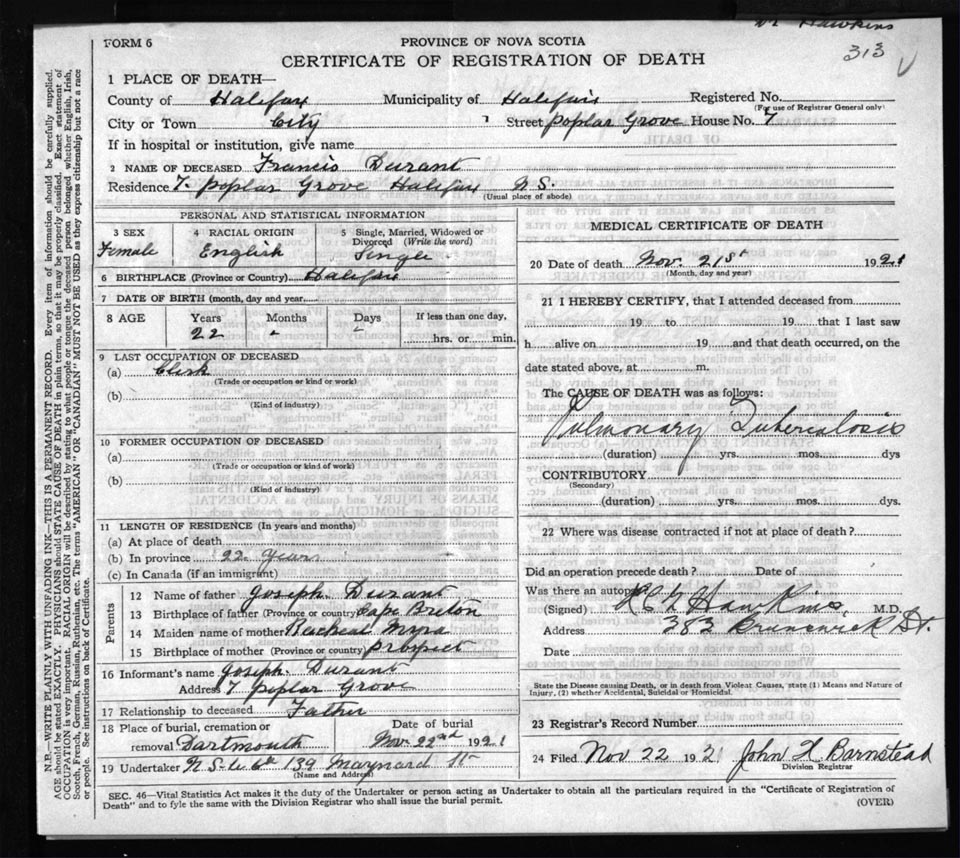 Hawkins
FORM 6
PROVINCE OF NOVA SCOTIA
313
CERTIFICATE OF REGISTRATION OF DEATH
1 PLACE OF DEATH—
County of Halifax Municipality of Halifax Registered No.
(For use of Registrar General only)
City or Town City Street Poplar Grove House No. 7
If in hospital or institution, give name
2 NAME OF DECEASED Francis Durant
Residence 7 Poplar Grove Halifax N.S.
(Usual place of abode)
PERSONAL AND STATISTICAL INFORMATION
3 SEX
Female
4 RACIAL ORIGIN
English
5 Single, Married, Widowed or Divorced (Write the word)
Single
6 BIRTHPLACE (Province or Country) Halifax
7 DATE OF BIRTH (month, day and year)
8 AGE Years Months Days If less than one day,
22 - - hrs. or min.
9 LAST OCCUPATION OF DECEASED
(a) Clerk
(Trade or occupation or kind or work)
(b)
(Kind of Industry)
10 FORMER OCCUPATION OF DECEASED
(a)
(Trade or occupation or kind of work)
(b)
(Kind of Industry)
11 LENGTH OF RESIDENCE (In years and months)
(a) At place of death
(b) In province 22 years
(c) In Canada (if an immigrant)
Parents
12 Name of father Joseph Durant
13 Birthplace of father (Province or country) Cape Breton
14 Maiden name of mother Racheal Myra
15 Birthplace of mother (Province or country) Prospect
16 Informant's name Joseph Durant
Address 7 Poplar Grove
17 Relationship to deceased Father
18 Place of burial, cremation or Date of burial
removal Dartmouth Nov. 22nd 1921
19 Undertaker N.S. 139 Maynard St
(Name and Address)
MEDICAL CERTIFICATE OF DEATH
20 Date of death Nov. 21st 1921
(Month, day and year)
21 I HEREBY CERTIFY, that I attended deceased from
19 to 19 that I last saw
h alive on 19 and that death occurred, on the
date stated above, at m.
The CAUSE OF DEATH was as follows:
Pulmonary Tuberculosis
(duration) yrs. mos. dys
CONTRIBUTORY
(Secondary)
(duration) yrs. mos. dys.
22 Where was disease contracted if not at place of death?
Did an operation precede death? Date of
Was there an autopsy
(Signed) Hawkins, M.D.
Address 383 Brunswick St.
Date
State the Disease causing Death, or in death from Violent Causes, state (1) Means and Nature of Injury, (2) whether Accidental, Suicidal or Homicidal.
23 Registrar's Record Number
24 Filed Nov 22 1921 John A Barnstead
Division Registrar
SEC. 46—Vital Statistics Act makes it the duty of the Undertaker or person acting as Undertaker to obtain all the particulars required in the "Certificate of Registration of
Death" and to fyle the same with the Division Registrar who shall issue the burial permit.
(OVER)
N.B.—WRITE PLAINLY WITH UNFADING INK—THIS IS A PERMANENT RECORD. Every item of information should be carefully supplied.
AGE should be stated EXACTLY. PHYSICIANS should STATE CAUSE OF DEATH in plain terms, so that it may be properly classified. Exact statement of
OCCUPATION is very important. RACIAL ORIGIN will be described by stating to what people or tongue the deceased person belonged whether English, Irish,
Scotch, French, German, Russian, Ruthenian, etc. The terms "AMERICAN" or "CANADIAN" MUST NOT BE USED as they express citizenship but not a race
or people. See instructions on back of Certificate.